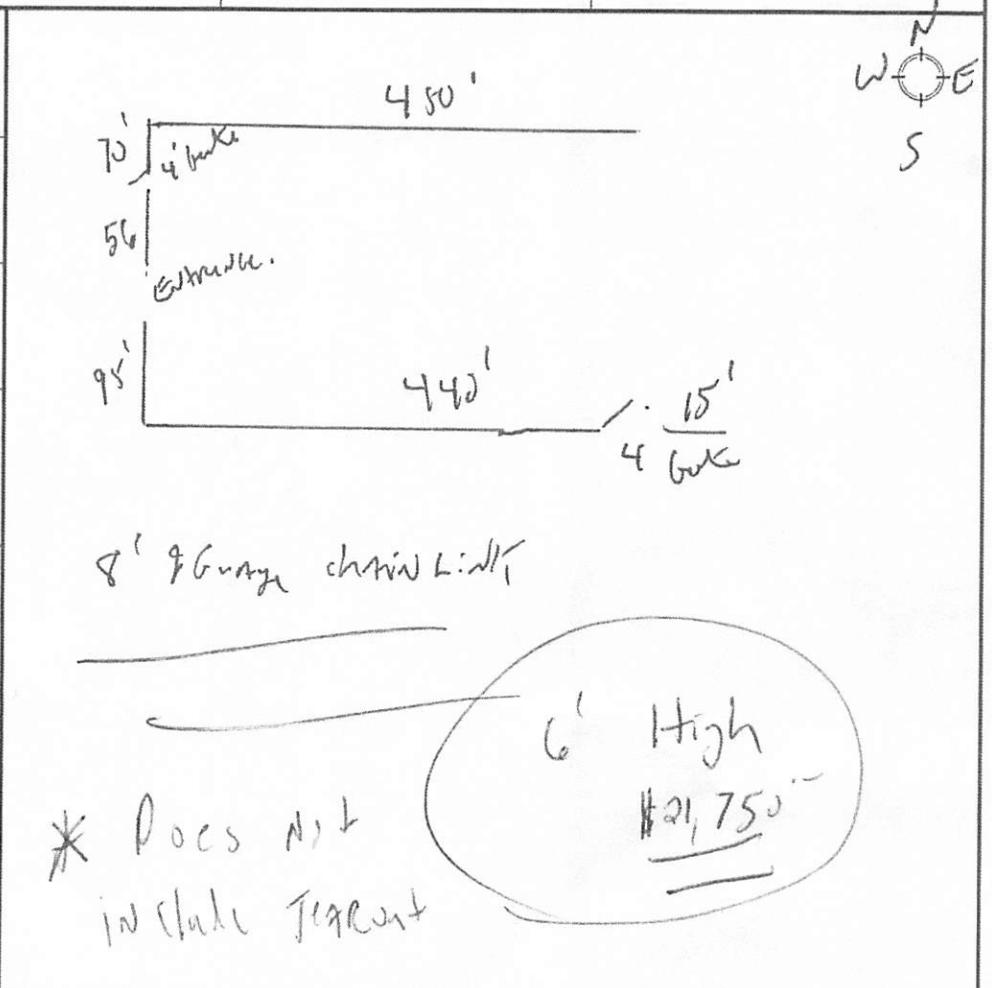 N
W E
S
450'
70'
4' Gate
56
Entrance.
95'
440'
15'
4 Gate
8' 9 Guage chain Link
6' High
$21,750
* Does Not
include Tearout